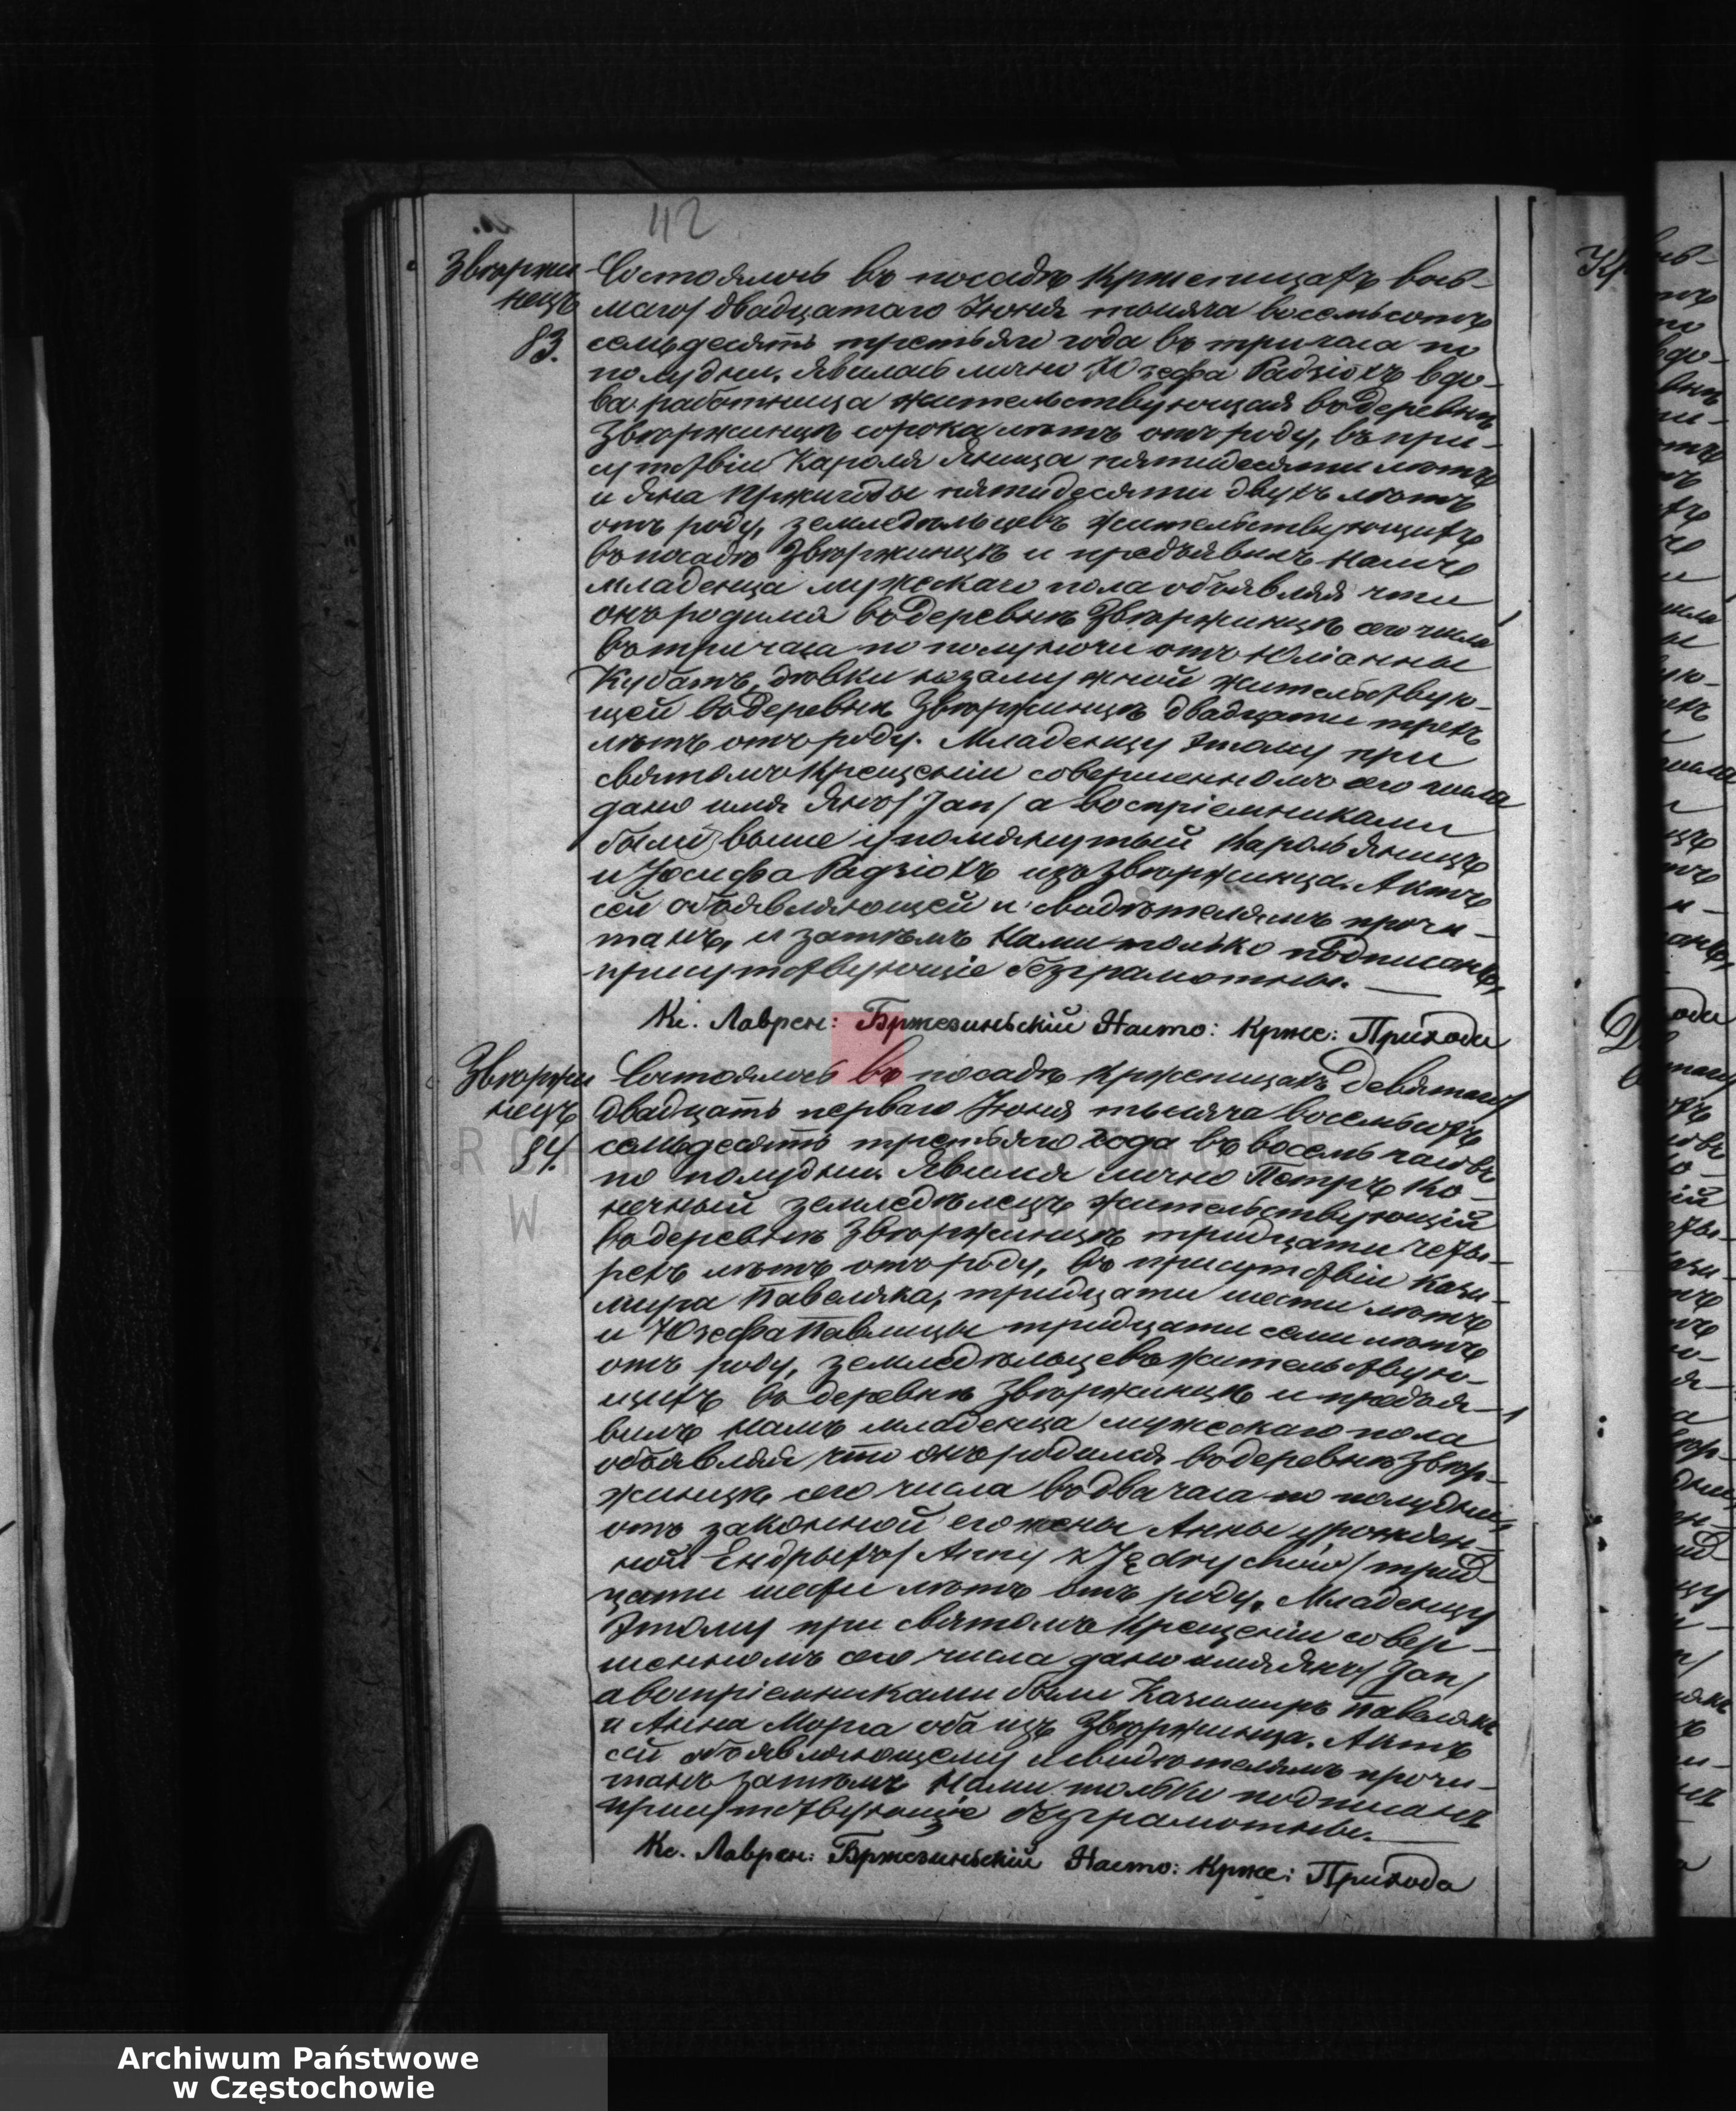 42
Зворжи
нецъ
83.
Состоялось въ посадѣ Крженицахъ вось-
маго/ двадцатаго Іюня тысяча восемьсотъ
семьдесятъ третьяго года въ три часа по
полудни. Явилась лично Юзефа Радзіохъ вдо-
ва работница жительствующая въ деревнѣ
Зворжинцѣ сорока лѣтъ отъ роду, въ при-
сутствіи Кароля Яница пятидесяти лѣтъ
и Яна Пржигоды пятидесяти двухъ лѣтъ
отъ роду, земледѣльцевъ жительствующихъ
въ посадѣ Зворжинцѣ и предъявилъ Намъ
младенца мужескаго пола объявляя что
онъ родился въ деревнѣ Зворжинцѣ сего числа
въ три часа по полуночи отъ Юліанны
Кубатъ, дѣвки незамужной жительствую-
щей въ деревнѣ Зворжинцѣ двадцати трехъ
лѣтъ отъ роду. Младенцу этому при
святомъ Крещеніи совершенномъ сего числа
дано имя Янъ/ Jan/ а воспріемниками
были выше упомянутый Кароль Яницъ
и Юзефа Радзіохъ изъ Зворжинца. Актъ
сей объявляющей и свидѣтелямъ прочи-
танъ, и затѣмъ Нами только подписанъ,
присутствующіе безграмотны.
Кс. Лаврен: Бржезиньскій Насто: Крже: Прихода
Зворжи
нецъ
84.
Состоялось въ посадѣ Крженицахъ Девятаго/
двадцать перваго Іюня тысяча восемьсотъ
семьдесятъ третьяго года въ восемь часовъ
по полудни. Явился лично Петръ Ко-
нечный земледѣлецъ жительствующій
въ деревнѣ Зворжинцѣ тридцати четы-
рехъ лѣтъ отъ роду, въ присутствіи Кази-
мира Павеляка, тридцати шести лѣтъ
и Юзефа Павлицы тридцати семи лѣтъ
отъ роду, земледѣльцевъ жительствую-
щихъ въ деревнѣ Зворжинцѣ и предъя-
вилъ Намъ младенца мужескаго пола
объявляя что онъ родился въ деревнѣ Звор-
жинцѣ сего числа въ два часа по полудни
отъ законной его жены Анны урожден-
ной Ендрыхъ/ Anny z Jędrychów/ трид-
цати шести лѣтъ отъ роду. Младенцу
этому при святомъ Крещеніи совер-
шенномъ сего числа дано имя Янъ/ Jan/
а воспріемниками были Казимиръ Павелякъ
и Анна Морга оба изъ Зворжинца. Актъ
сей объявляющему и свидѣтелямъ прочи-
танъ затѣмъ Нами только подписанъ
присутствующіе безграмотны.
Кс. Лаврен: Бржезиньскій Насто: Крже: Прихода
Archiwum Państwowe
w Częstochowie